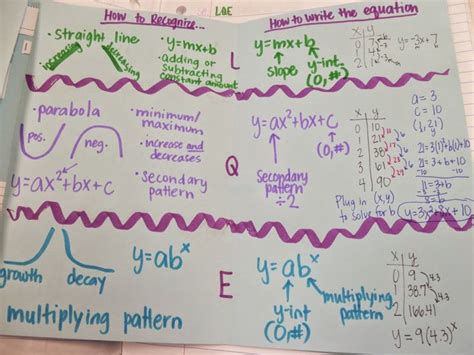 LQE
How to Recognize...
How to write the equation
straight line
increasing
decreasing
• y=mx+b
• adding or
subtracting
constant amount
L
y=mx+b
slope
y-int
(0,#)
x|y
0 7
y=-3x+7
• parabola
pos.
neg.
y=ax²+bx+c
• minimum/
maximum
• increase and
decreases
• secondary
pattern
Q
y=ax²+bx+c
Secondary
pattern
÷2
(0,#)
x|y
0 10
1 21
2 38
3 61
4 90
a=3
c=10
(1,21)
21=3(1)²+b(1)+10
21=3+b+10
-10 -10
11=3+b
-3 -3
Plug in (x,y)
to solve for b
y=3x²+8x+10
growth
decay
y=abˣ
multiplying pattern
E
y=abˣ
y-int
(0,#)
multiplying
pattern
x|y
0 9
1 38.7
2 166.41
y=9(4.3)ˣ